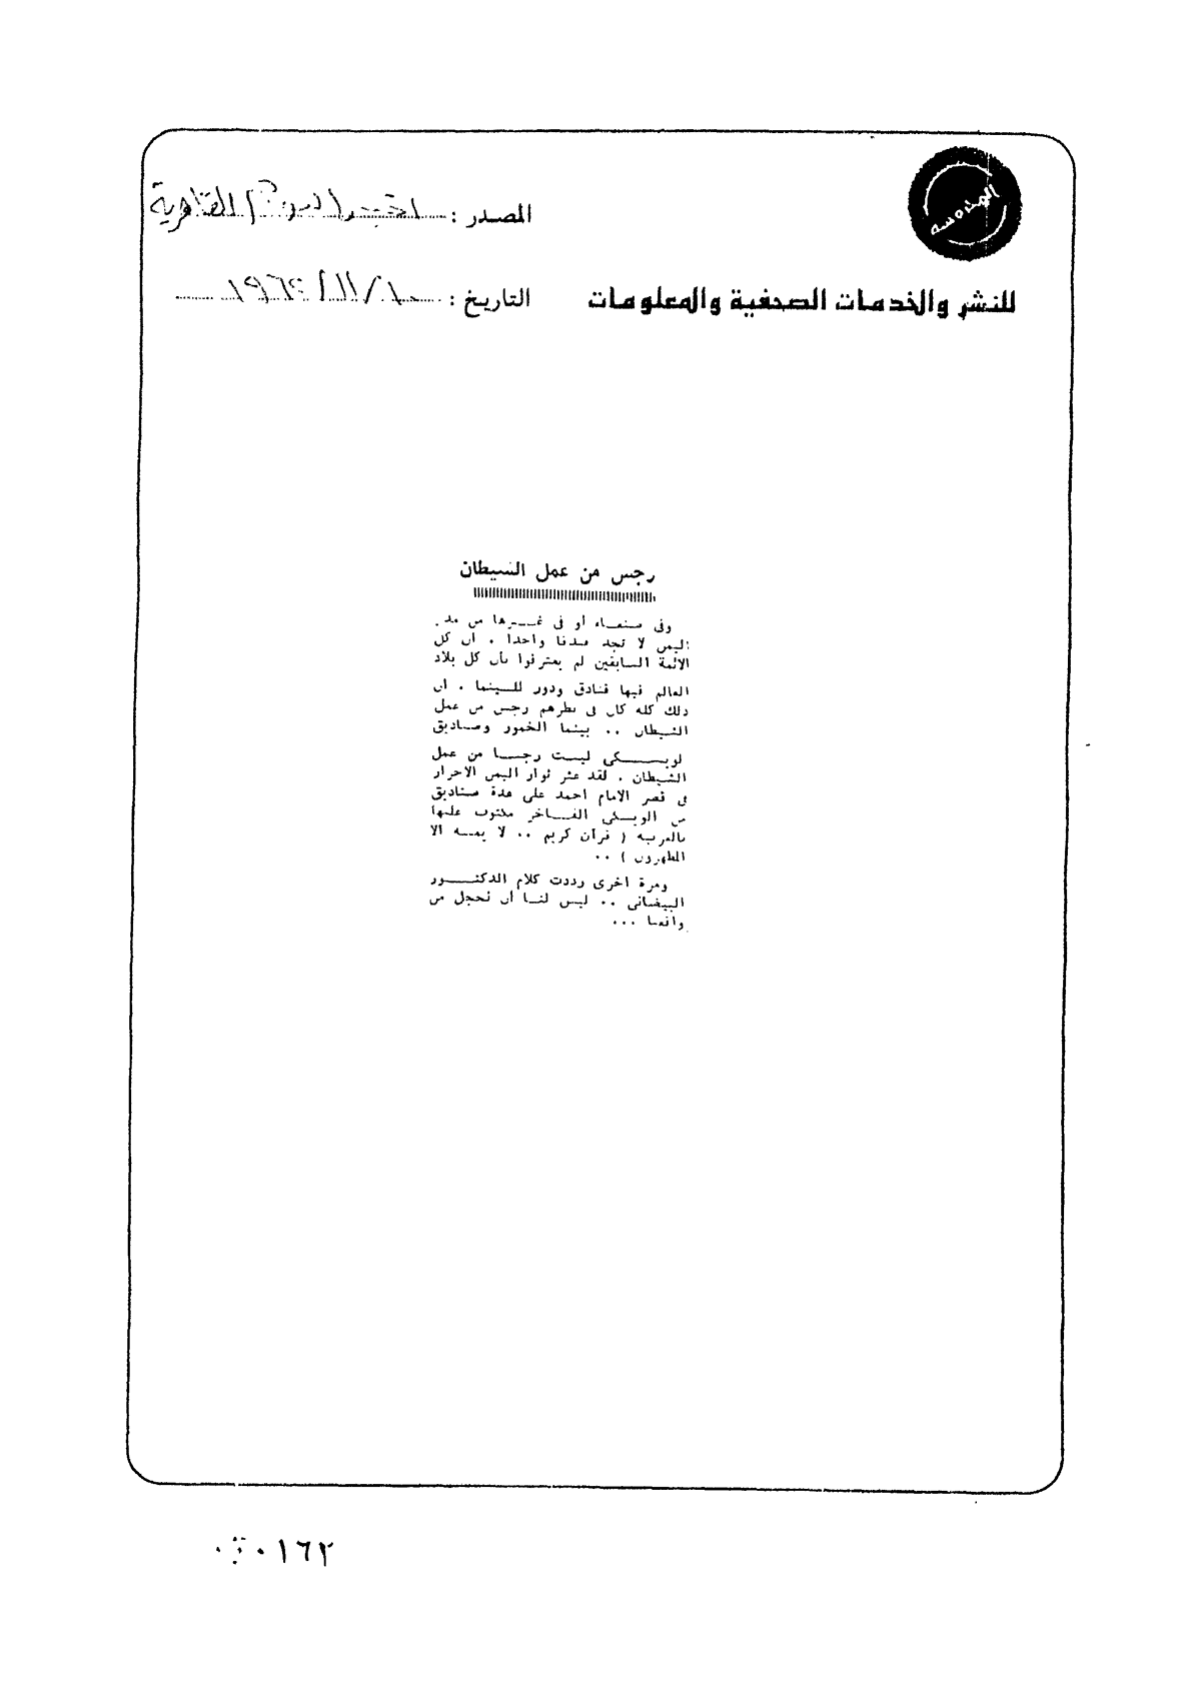 المصدر : اخبار اليوم القاهرية
التاريخ : ١٠/ ١١/ ١٩٦٢
للنشر والخدمات الصحفية والمعلومات
رجس من عمل الشيطان
وفى صنعاء أو فى غيرها من مدن
اليمن لا تجد فندقا واحدا . ان كل
الائمة السابقين لم يعترفوا بأن كل بلاد
العالم فيها فنادق ودور للسينما . ان
ذلك كله كان فى نظرهم رجس من عمل
الشيطان .. بينما الخمور وصناديق
الويسكى ليست رجسا من عمل
الشيطان . لقد عثر ثوار اليمن الاحرار
فى قصر الامام احمد على عدة صناديق
من الويسكى الفاخر مكتوب عليها
بالعربية ( قرآن كريم .. لا يمسه الا
المطهرون ) ..
ومرة اخرى رددت كلام الدكتور
البيضانى .. ليس لنا أن نخجل من
واقعنا ...
٠١٦٢